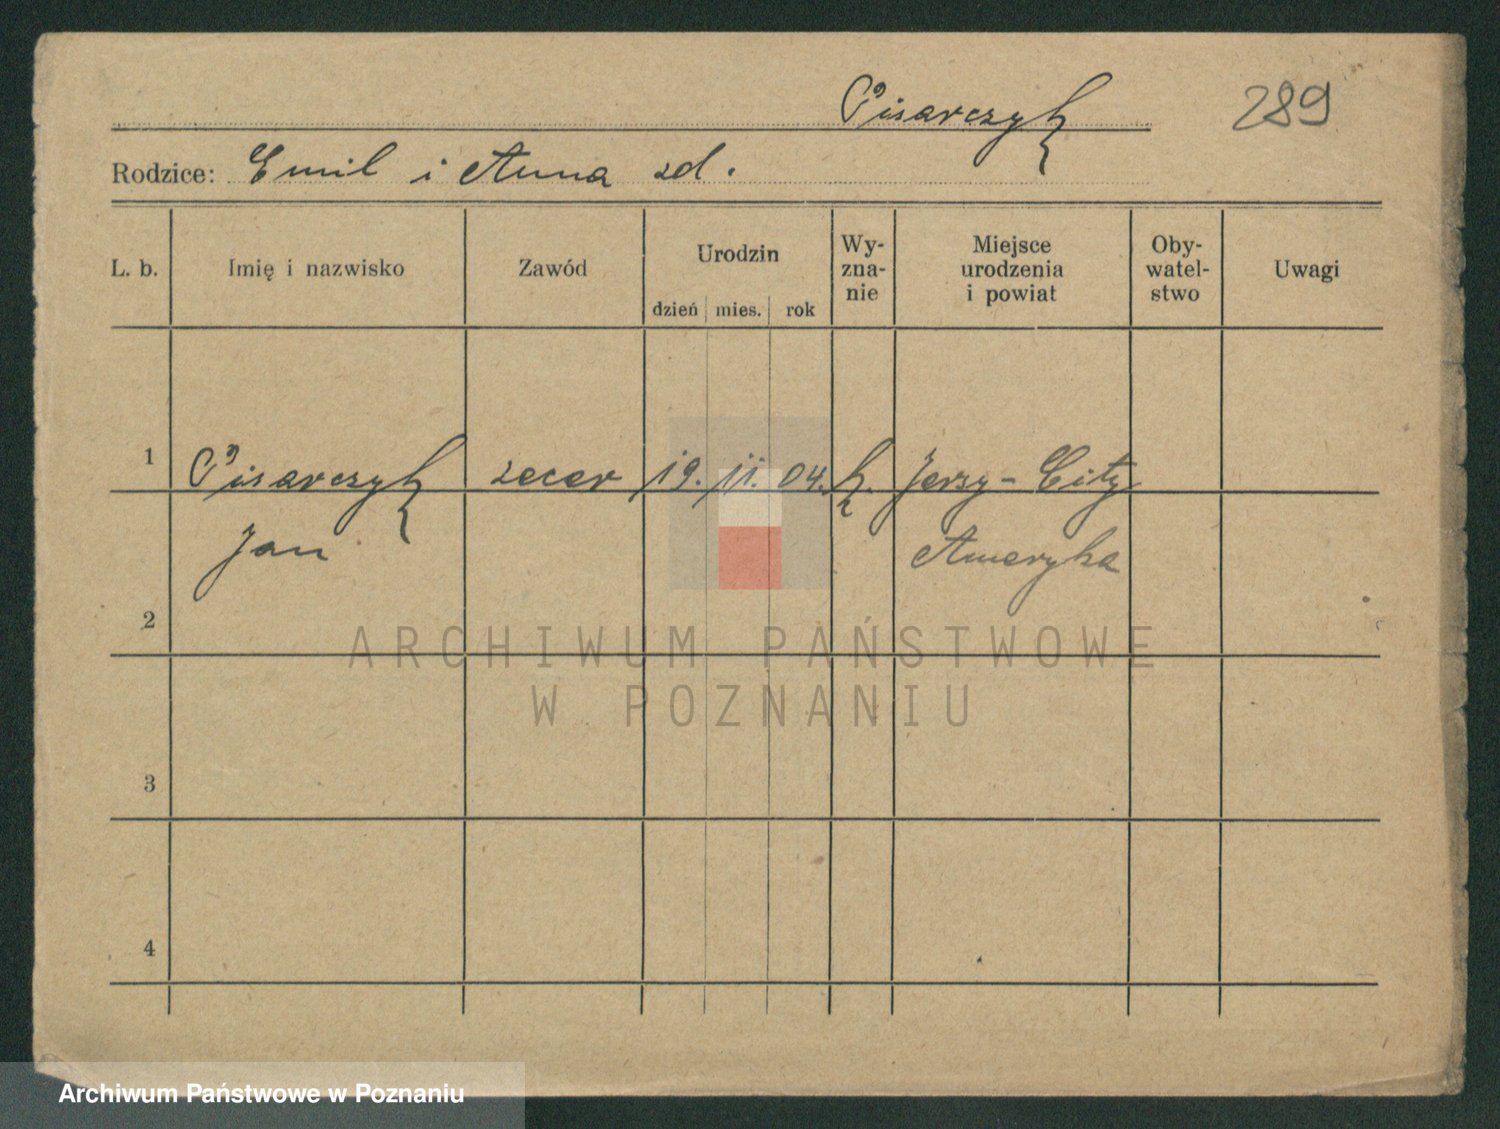 Pisarczyk 289
Rodzice: Emil i Anna zd.
L. b. Imię i nazwisko Zawód Urodzin dzień mies. rok Wy-zna-nie Miejsce urodzenia i powiat Oby-watel-stwo Uwagi
1 Pisarczyk zecer 19. 11. 04. k. Jerzy-City
Jan Ameryka
2
ARCHIWUM PAŃSTWOWE
W POZNANIU
3
4
Archiwum Państwowe w Poznaniu